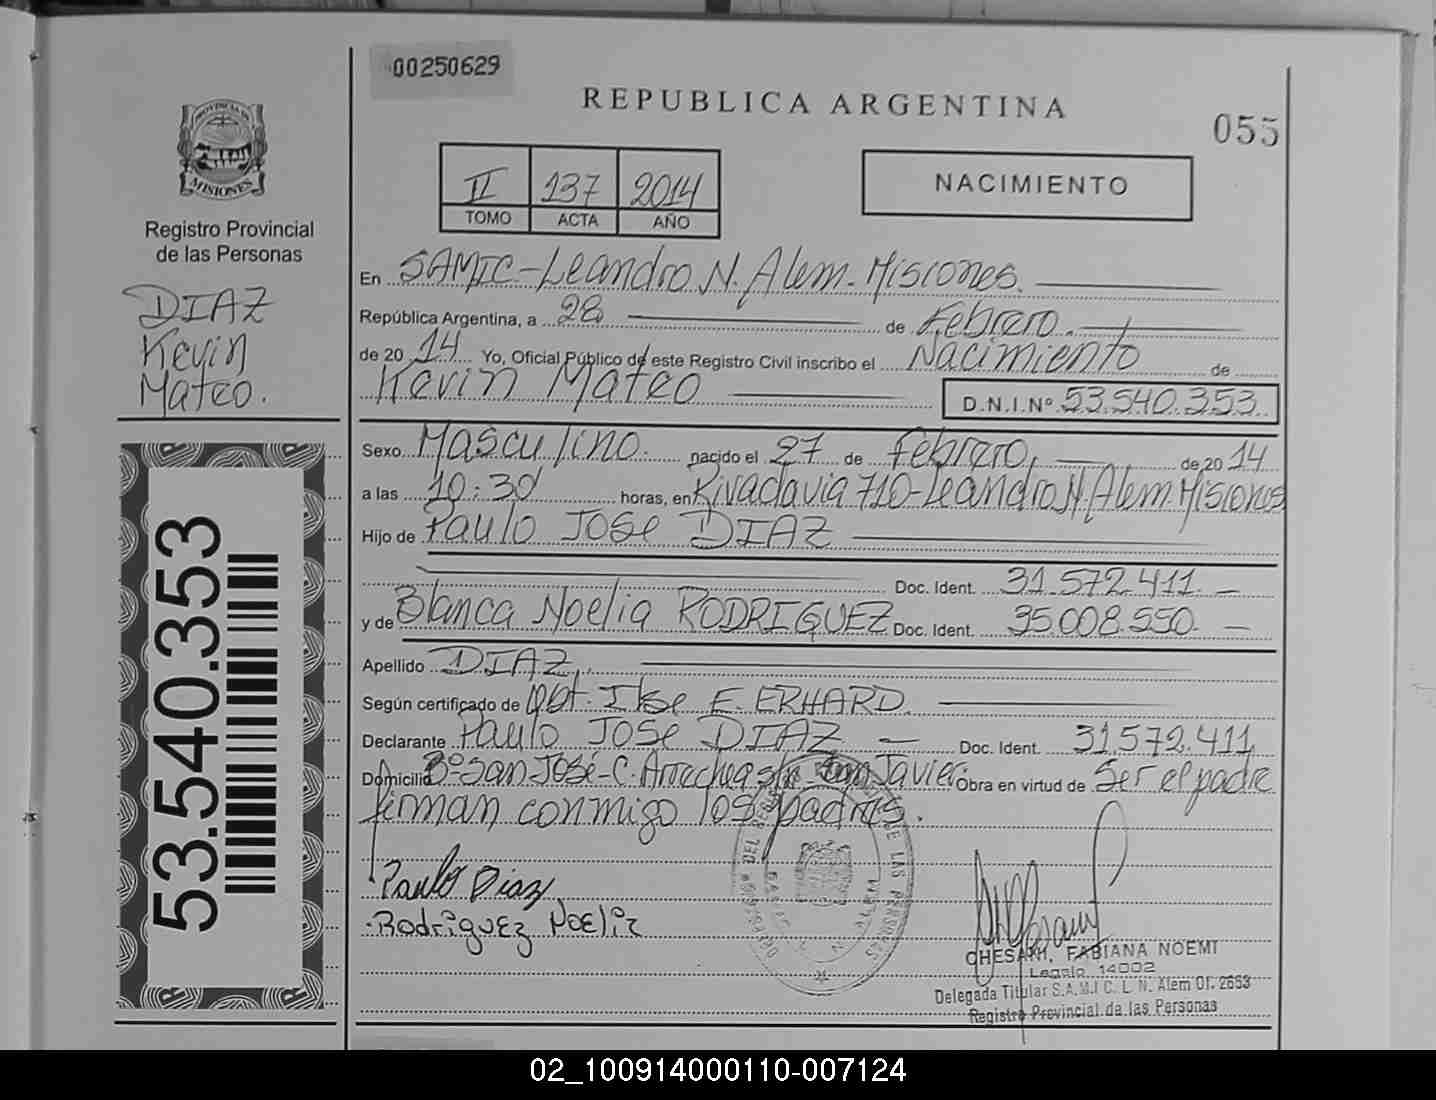 00250629
REPUBLICA ARGENTINA
055
PROVINCIA DE
MISIONES
Registro Provincial
de las Personas
DIAZ
Kevin
Mateo.
53.540.353
II 137 2014
TOMO ACTA AÑO
NACIMIENTO
En SAMIC-Leandro N. Alem-Misiones.
República Argentina, a 28 de Febrero.
de 20 14 Yo, Oficial Público de este Registro Civil inscribo el Nacimiento de
Kevin Mateo D.N.I.Nº 53.540.353
Sexo Masculino. nacido el 27 de Febrero. de 20 14
a las 10:30 horas, en Rivadavia 710-Leandro N. Alem.Misiones
Hijo de Paulo Jose DIAZ
Doc. Ident. 31.572.411.
y de Blanca Noelia RODRIGUEZ Doc. Ident. 35.008.550.
Apellido DIAZ.
Según certificado de Obt. Ilse E. ERHARD.
Declarante Paulo Jose DIAZ Doc. Ident. 31.572.411
Domicilio Bº San José-C. Arrechea Javier Obra en virtud de Ser el padre
firman conmigo los padres.
Paulo Diaz
Rodriguez Noelia
DEL REGISTRO DE LAS PERSONAS
CHESANI, FABIANA NOEMI
Legajo 14002
Delegada Titular S.A.M.I C. L. N. Alem Of. 2653
Registro Provincial de las Personas
02_100914000110-007124